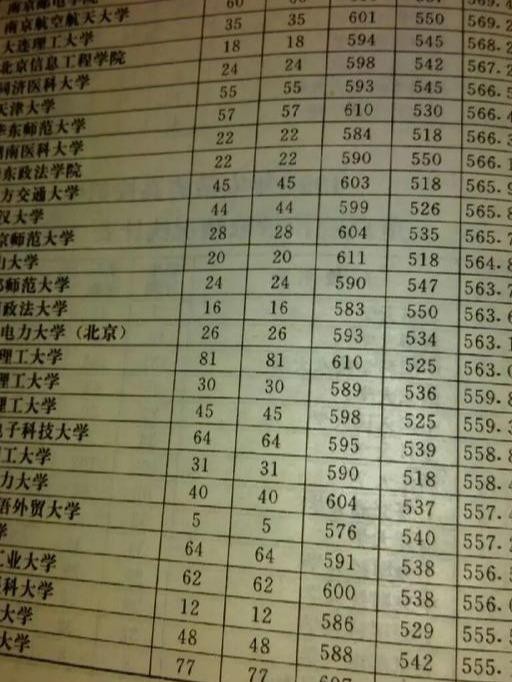 南京邮电学院 60
南京航空航天大学 35 35 601 550 569.2
大连理工大学 18 18 594 545 568.2
北京信息工程学院 24 24 598 542 567.2
同济医科大学 55 55 593 545 566.5
天津大学 57 57 610 530 566.4
华东师范大学 22 22 584 518 566.3
湖南医科大学 22 22 590 550 566.1
东政法学院 45 45 603 518 565.9
方交通大学 44 44 599 526 565.8
汉大学 28 28 604 535 565.7
京师范大学 20 20 611 518 564.8
山大学 24 24 590 547 563.7
师范大学 16 16 583 550 563.6
政法大学 26 26 593 534 563.1
电力大学（北京） 81 81 610 525 563.0
理工大学 30 30 589 536 559.8
理工大学 45 45 598 525 559.3
理工大学 64 64 595 539 558.8
电子科技大学 31 31 590 518 558.4
工大学 40 40 604 537 557.4
力大学 5 5 576 540 557.2
语外贸大学 64 64 591 538 556.5
学 62 62 600 538 556.0
工业大学 12 12 586 529 555.5
科大学 48 48 588 542 555.1
大学 77 77
大学